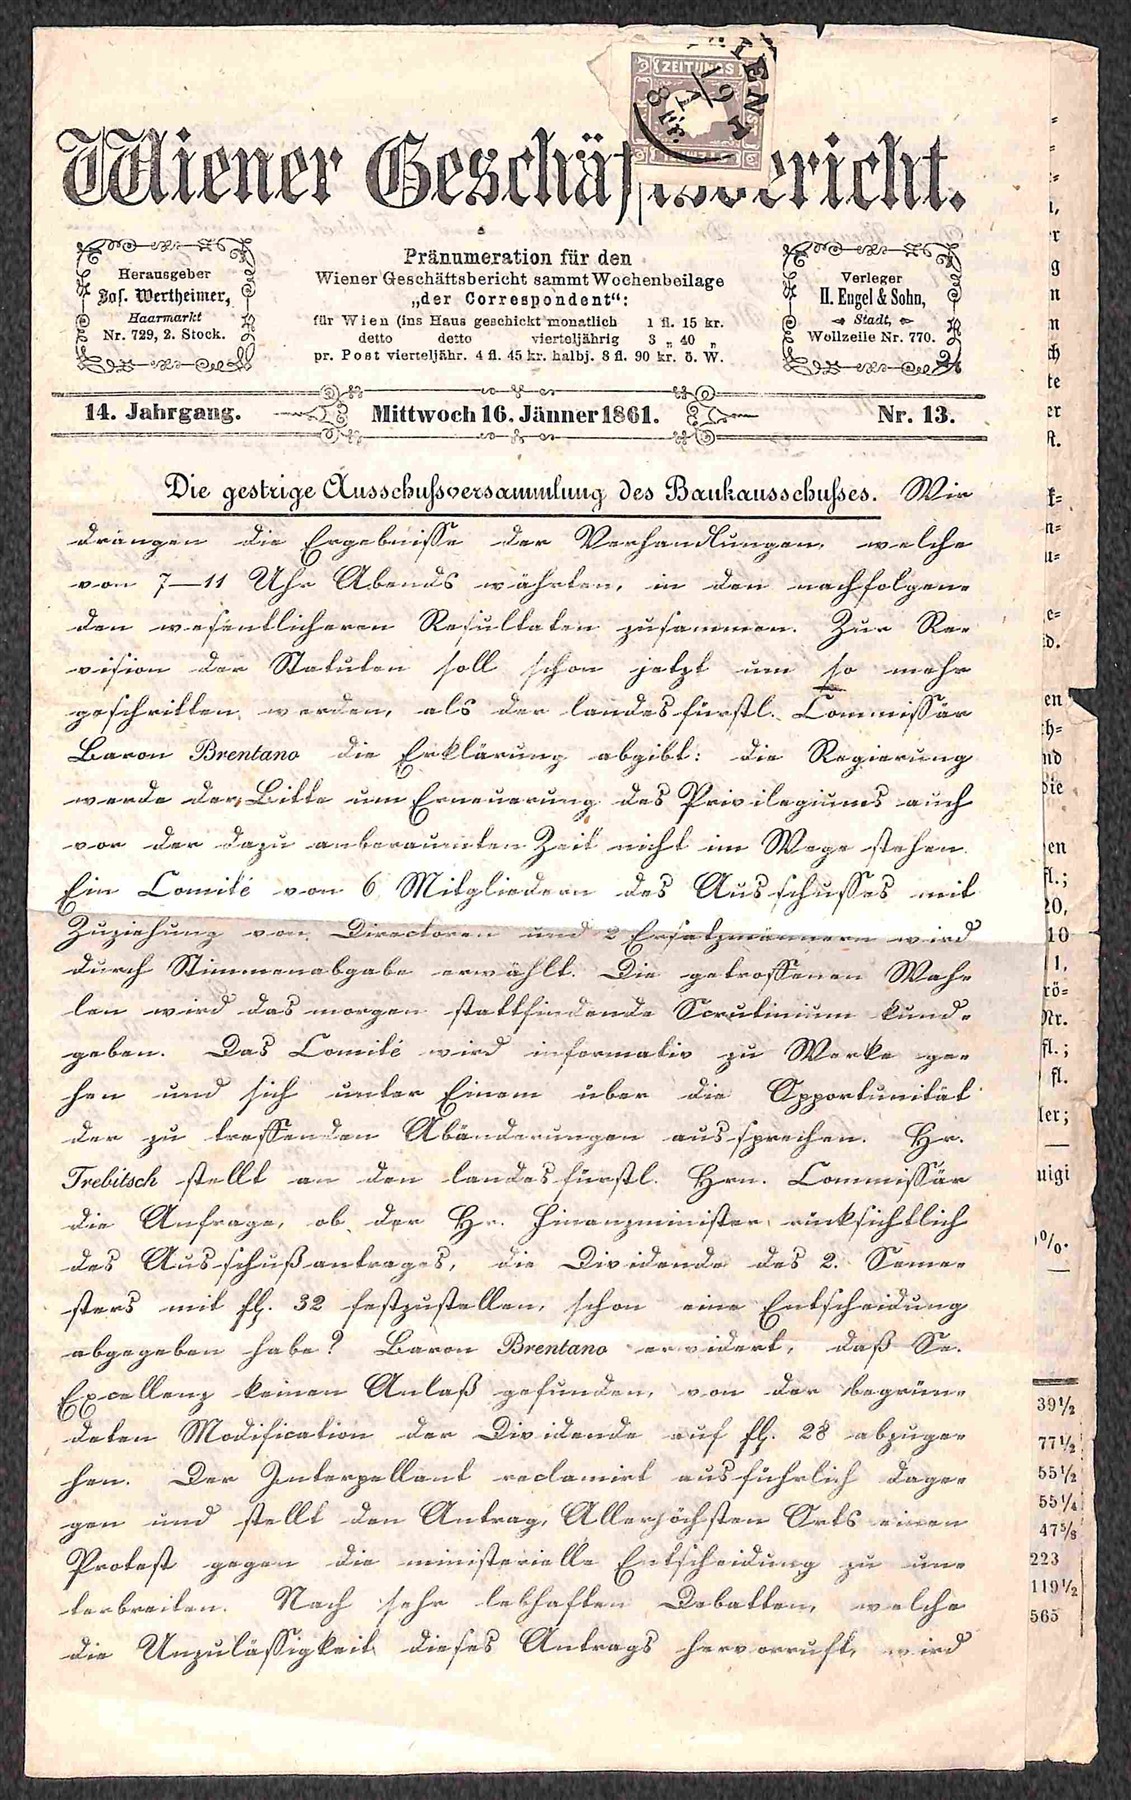 ZEITUNGS
WIEN
Wiener Geschäftsbericht.
Herausgeber
Jos. Wertheimer,
Haarmarkt
Nr. 729, 2. Stock.
Pränumeration für den
Wiener Geschäftsbericht sammt Wochenbeilage
„der Correspondent“:
für Wien (ins Haus geschickt monatlich 1 fl. 15 kr.
detto detto vierteljährig 3 „ 40 „
pr. Post vierteljähr. 4 fl. 45 kr. halbj. 8 fl. 90 kr. ö. W.
Verleger
H. Engel & Sohn,
Stadt,
Wollzeile Nr. 770.
14. Jahrgang.
Mittwoch 16. Jänner 1861.
Nr. 13.
Die gestrige Ausschussversammlung des Bankausschusses. Wir
drängen die Ergebnisse der Verhandlungen, welche
von 7—11 Uhr Abends währten, in den nachfolgen-
den wesentlicheren Resultaten zusammen. Zur Re-
vision der Statuten soll schon jetzt um so mehr
geschritten werden, als der landesfürstl. Commissär
Baron Brentano die Erklärung abgibt: die Regierung
werde der Bitte um Erneuerung des Privilegiums auch
vor der dazu anberaumten Zeit nicht im Wege stehen.
Ein Comité von 6 Mitgliedern des Ausschusses mit
Zuziehung von Directoren und 2 Ersatzmännern wird
durch Stimmenabgabe erwählt. Die getroffenen Wah-
len wird das morgen stattfindende Scrutinium kund-
geben. Das Comité wird informativ zu Werke ge-
hen und sich unter Einem über die Opportunität
der zu treffenden Abänderungen aussprechen. Hr.
Trebitsch stellt an den landesfürstl. Hrn. Commissär
die Anfrage, ob der Hr. Finanzminister rücksichtlich
des Ausschußantrages, die Dividende des 2. Seme-
sters mit fl. 32 festzustellen, schon eine Entscheidung
abgegeben habe? Baron Brentano erwidert, daß Se.
Excellenz keinen Anlaß gefunden, von der begrün-
deten Modification der Dividende auf fl. 28 abzuge-
hen. Der Interpellant reclamirt ausführlich dage-
gen und stellt den Antrag, Allerhöchsten Orts einen
Protest gegen die ministerielle Entscheidung zu un-
terbreiten. Nach sehr lebhaften Debatten, welche
die Unzulässigkeit dieses Antrags hervorruft, wird
39½
77½
55½
55¼
47⅝
223
119½
565